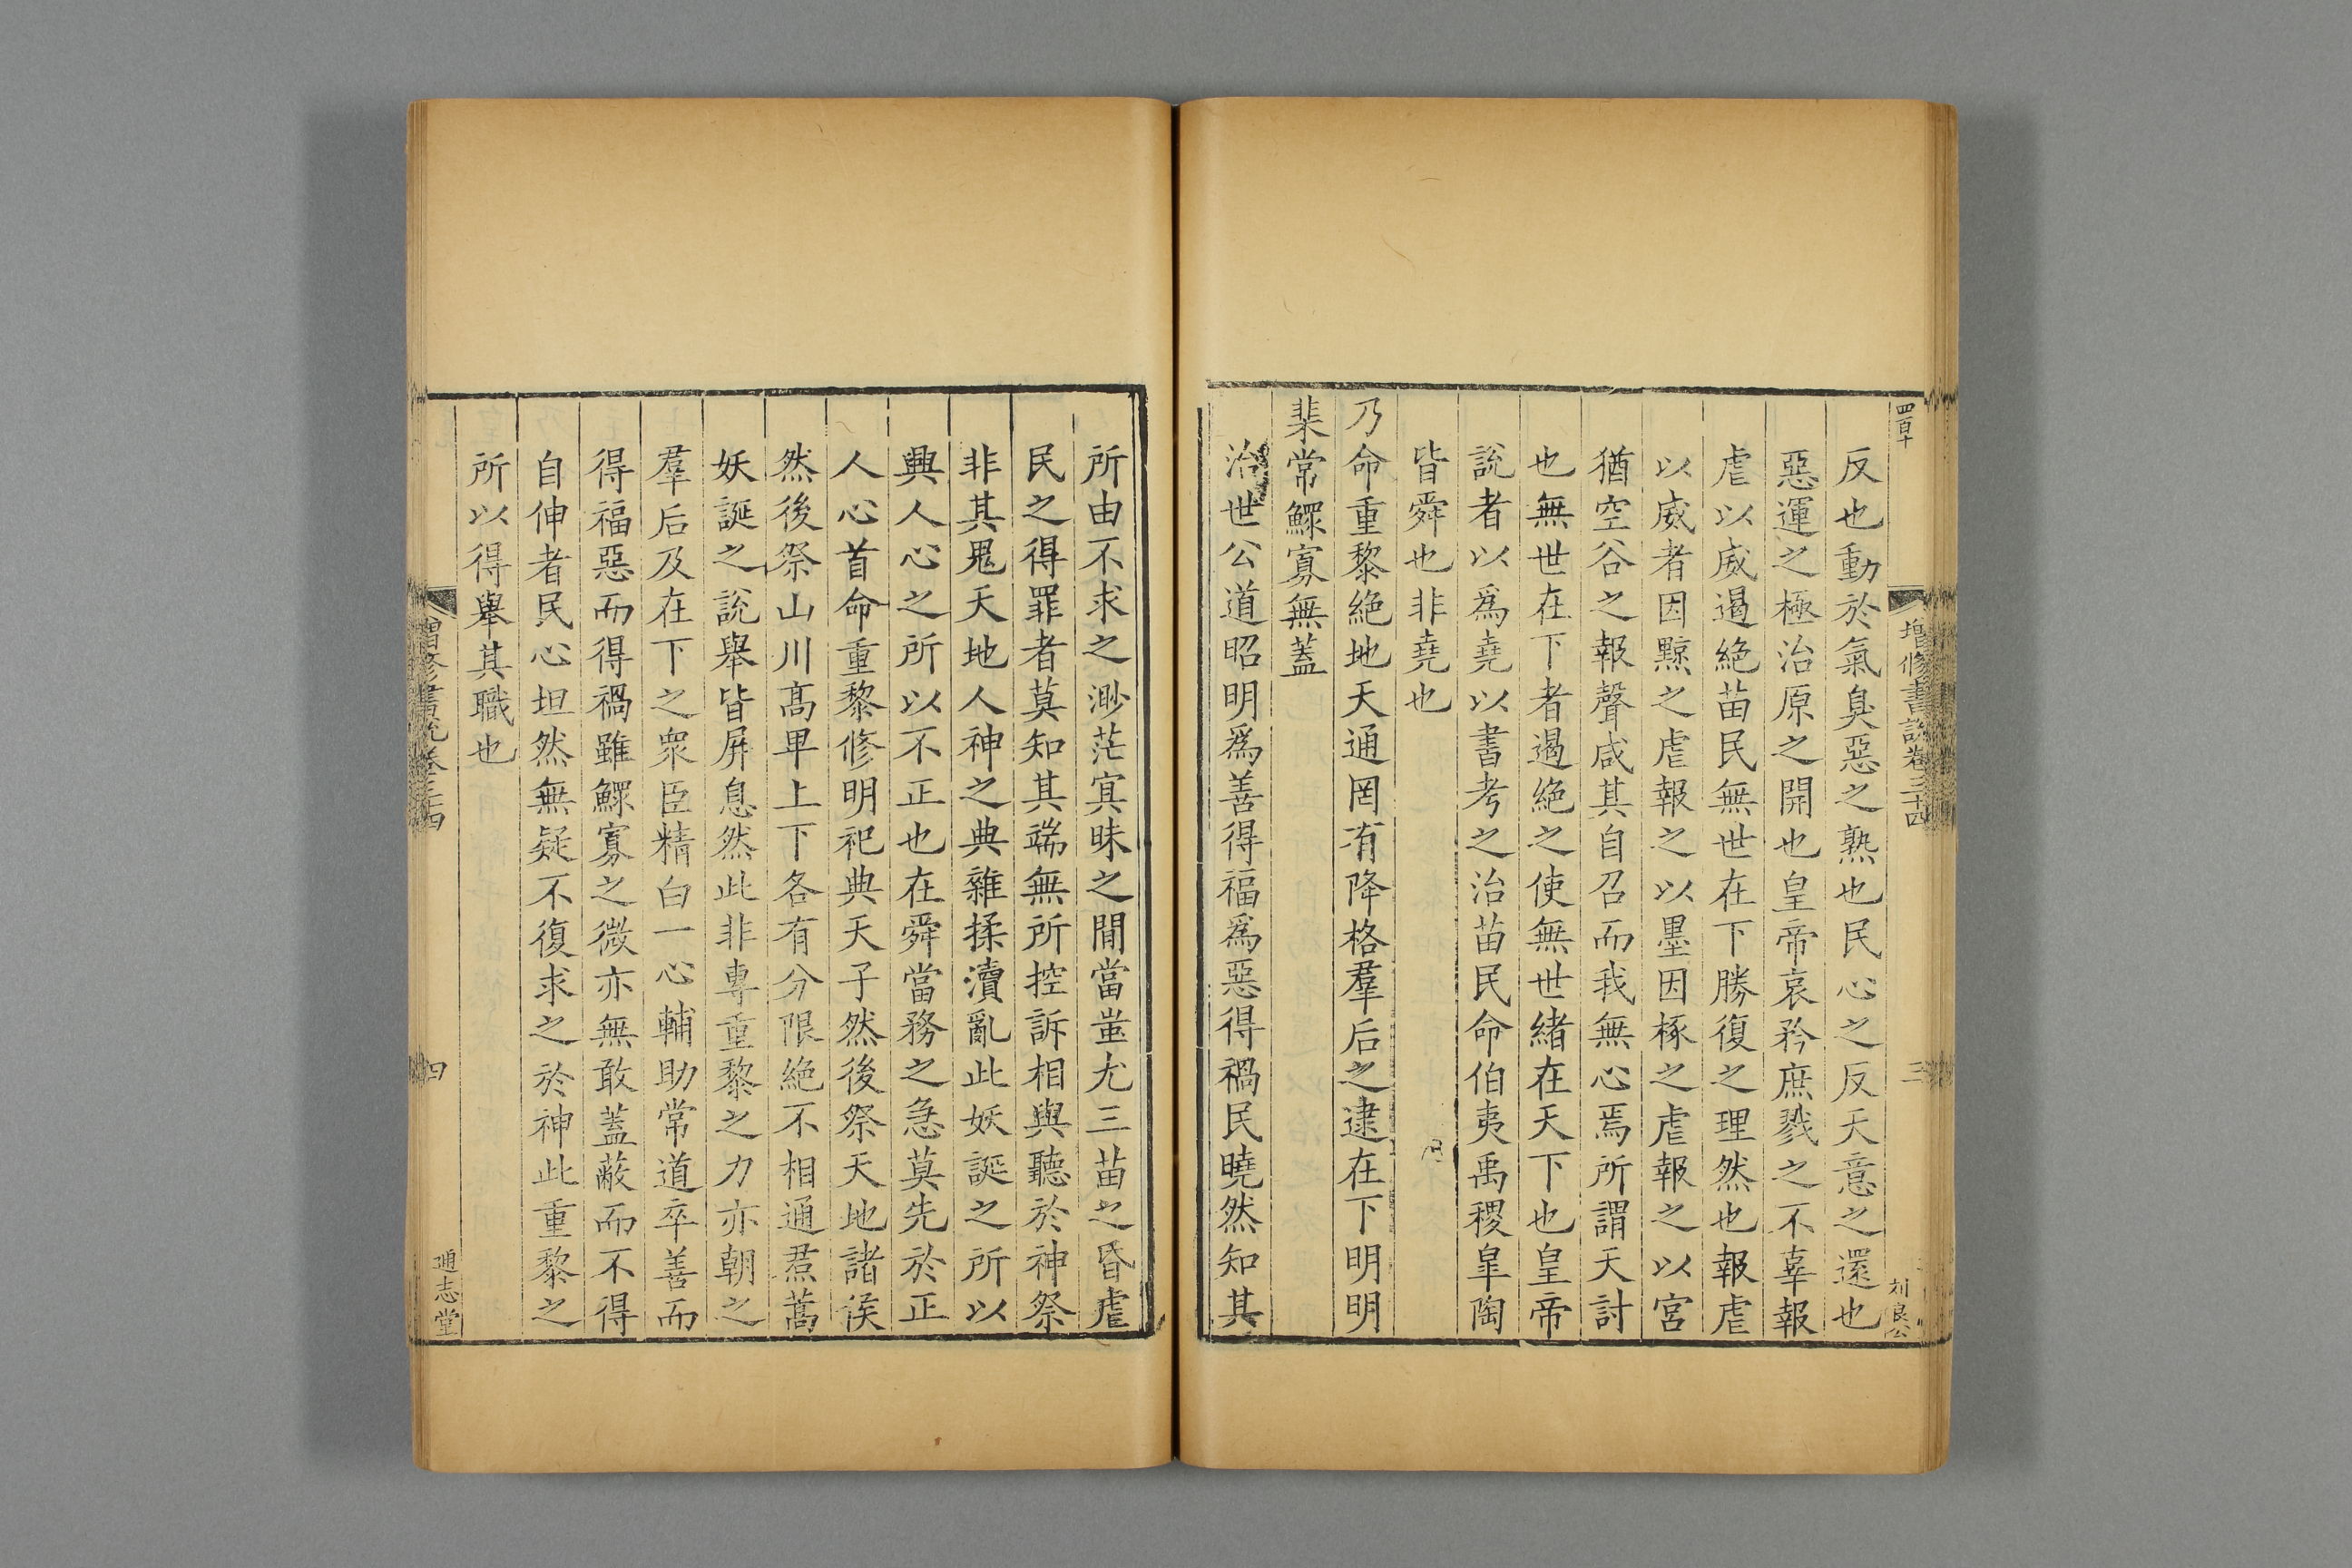 反也動於氣臭惡之熟也民心之反天意之還也
惡運之極治原之開也皇帝哀矜庶戮之不辜報
虐以威遏絕苗民無世在下勝復之理然也報虐
以威者因黥之虐報之以墨因椓之虐報之以宮
猶空谷之報聲咸其自召而我無心焉所謂天討
也無世在下者遏絕之使無世緒在天下也皇帝
說者以爲堯以書考之治苗民命伯夷禹稷臯陶
皆舜也非堯也
乃命重黎絕地天通罔有降格羣后之逮在下明明
棐常鰥寡無蓋
治世公道昭明爲善得福爲惡得禍民曉然知其
增修書說卷三十四
三
所由不求之渺茫冥昧之間當蚩尤三苗之昏虐
民之得罪者莫知其端無所控訴相與聽於神祭
非其鬼天地人神之典雜揉瀆亂此妖誕之所以
興人心之所以不正也在舜當務之急莫先於正
人心首命重黎修明祀典天子然後祭天地諸侯
然後祭山川高卑上下各有分限絕不相通焄蒿
妖誕之說舉皆屏息然此非專重黎之力亦朝之
羣后及在下之衆臣精白一心輔助常道卒善而
得福惡而得禍雖鰥寡之微亦無敢蓋蔽而不得
自伸者民心坦然無疑不復求之於神此重黎之
所以得舉其職也
增修書說卷三十四
四
通志堂